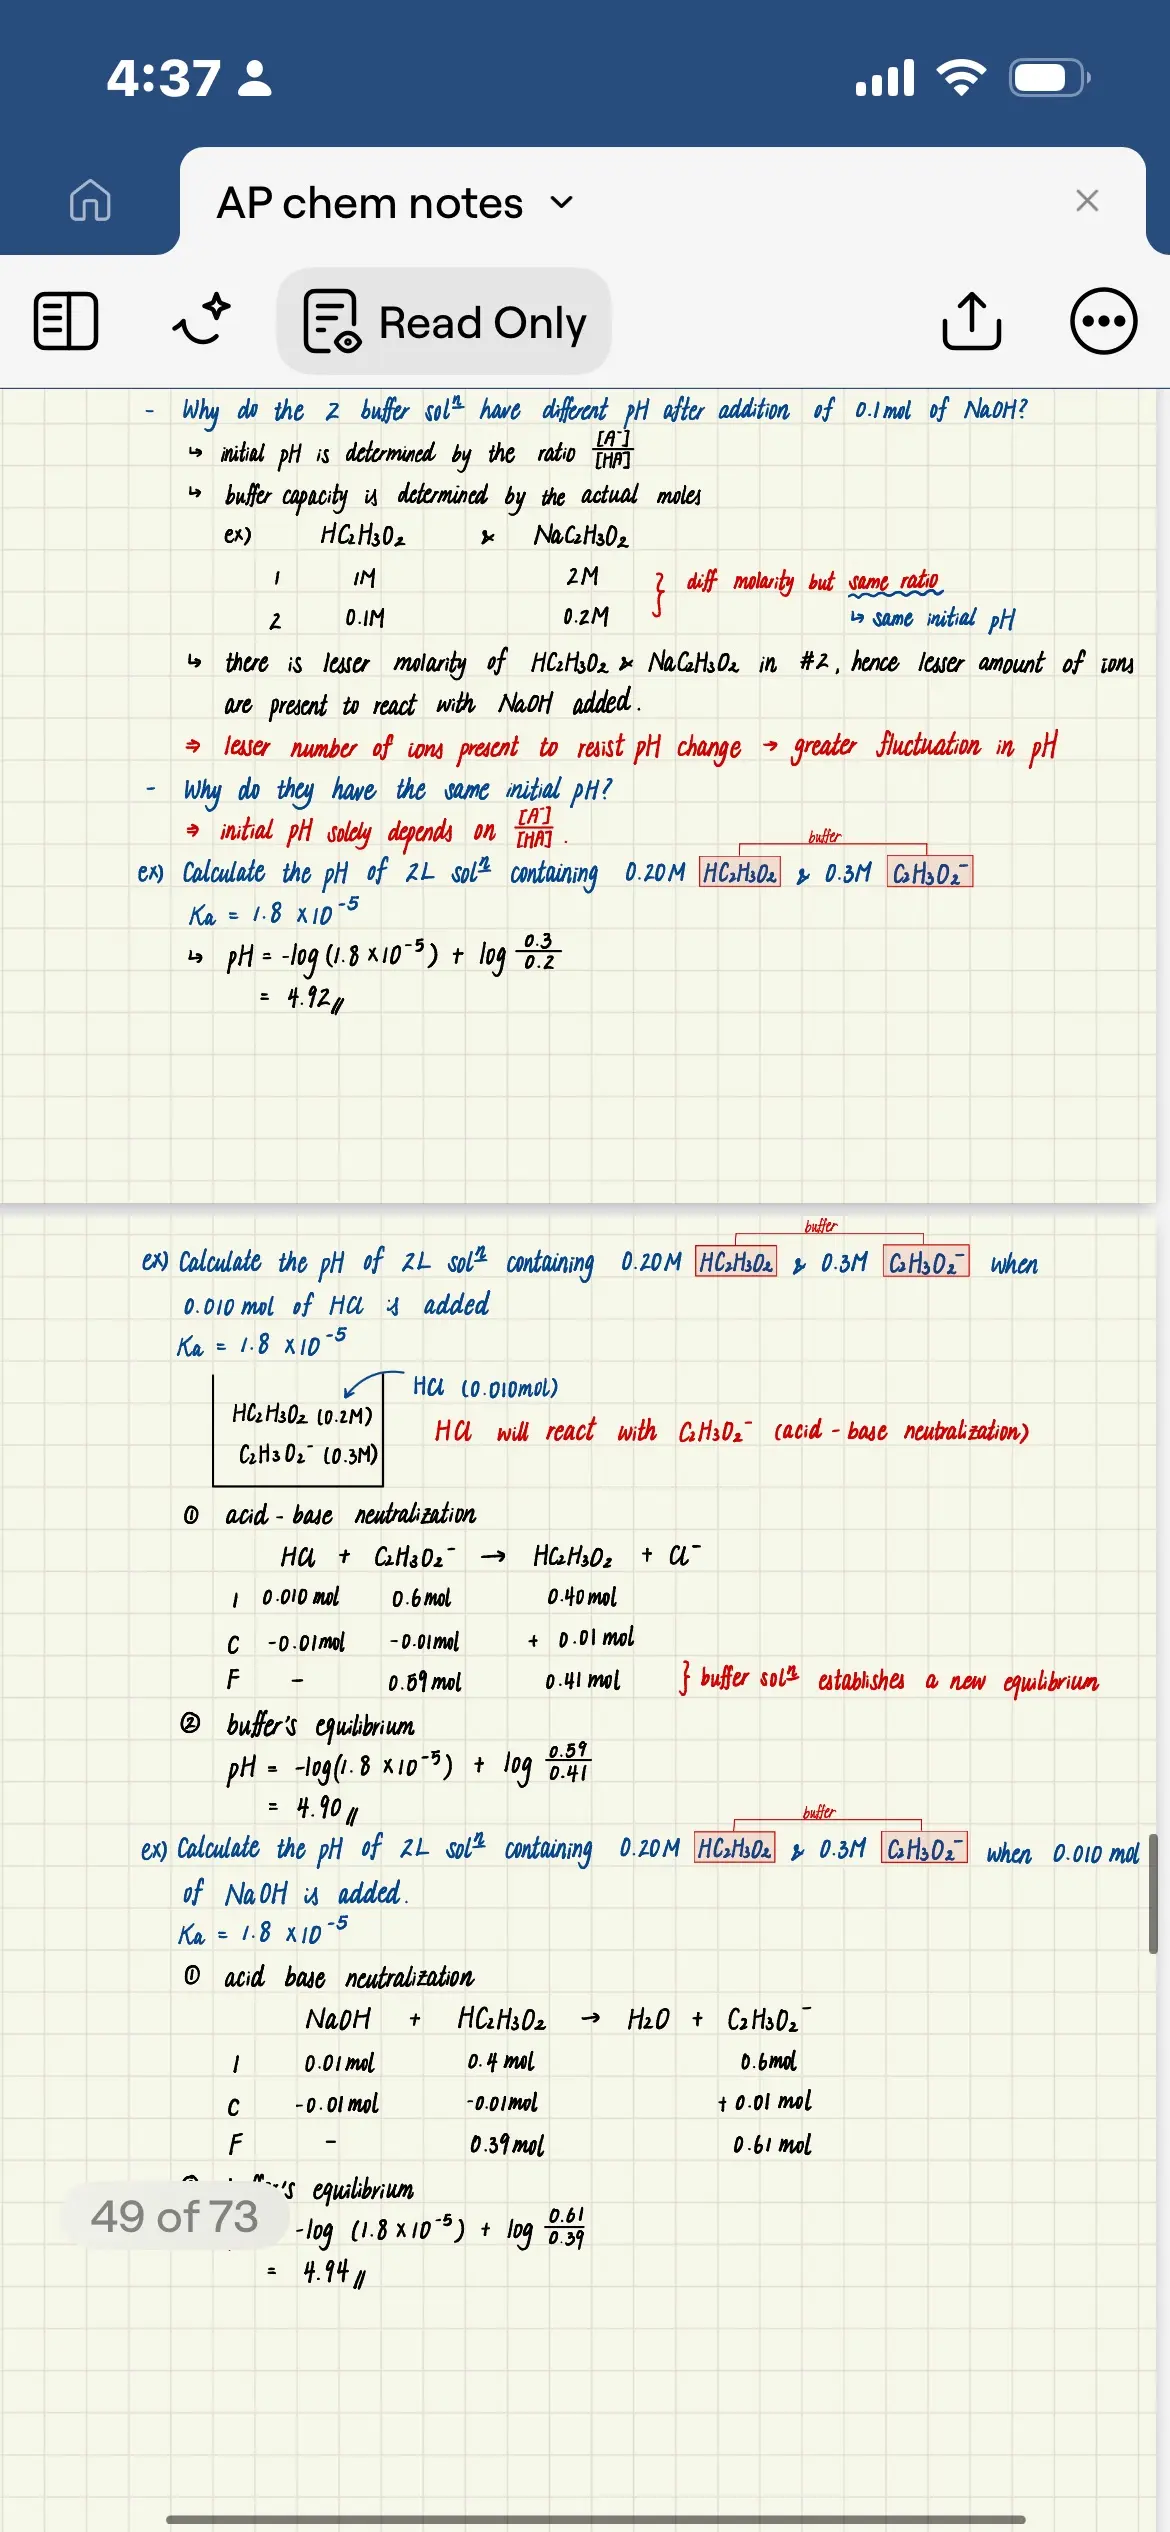 4:37
AP chem notes
Read Only
- Why do the 2 buffer solⁿ have different pH after addition of 0.1mol of NaOH?
↳ initial pH is determined by the ratio [A⁻]/[HA]
↳ buffer capacity is determined by the actual moles
ex) HC₂H₃O₂ & NaC₂H₃O₂
1 1M 2M } diff molarity but same ratio
2 0.1M 0.2M ↳ same initial pH
↳ there is lesser molarity of HC₂H₃O₂ & NaC₂H₃O₂ in #2, hence lesser amount of ions
are present to react with NaOH added.
⇒ lesser number of ions present to resist pH change → greater fluctuation in pH
- Why do they have the same initial pH?
⇒ initial pH solely depends on [A⁻]/[HA].
buffer
ex) Calculate the pH of 2L solⁿ containing 0.20M HC₂H₃O₂ & 0.3M C₂H₃O₂⁻
Ka = 1.8 ×10⁻⁵
↳ pH = -log (1.8 ×10⁻⁵) + log 0.3/0.2
= 4.92//
buffer
ex) Calculate the pH of 2L solⁿ containing 0.20M HC₂H₃O₂ & 0.3M C₂H₃O₂⁻ when
0.010 mol of HCl is added
Ka = 1.8 ×10⁻⁵
HCl (0.010mol)
HC₂H₃O₂ (0.2M)
HCl will react with C₂H₃O₂⁻ (acid-base neutralization)
C₂H₃O₂⁻ (0.3M)
① acid-base neutralization
HCl + C₂H₃O₂⁻ → HC₂H₃O₂ + Cl⁻
I 0.010 mol 0.6mol 0.40mol
C -0.01mol -0.01mol + 0.01 mol
F - 0.59mol 0.41 mol } buffer solⁿ establishes a new equilibrium
② buffer's equilibrium
pH = -log(1.8 ×10⁻⁵) + log 0.59/0.41
= 4.90//
buffer
ex) Calculate the pH of 2L solⁿ containing 0.20M HC₂H₃O₂ & 0.3M C₂H₃O₂⁻ when 0.010 mol
of NaOH is added.
Ka = 1.8 ×10⁻⁵
① acid base neutralization
NaOH + HC₂H₃O₂ → H₂O + C₂H₃O₂⁻
I 0.01mol 0.4 mol 0.6mol
C -0.01mol -0.01mol + 0.01 mol
F - 0.39mol 0.61 mol
equilibrium
49 of 73
-log (1.8 ×10⁻⁵) + log 0.61/0.39
= 4.94//